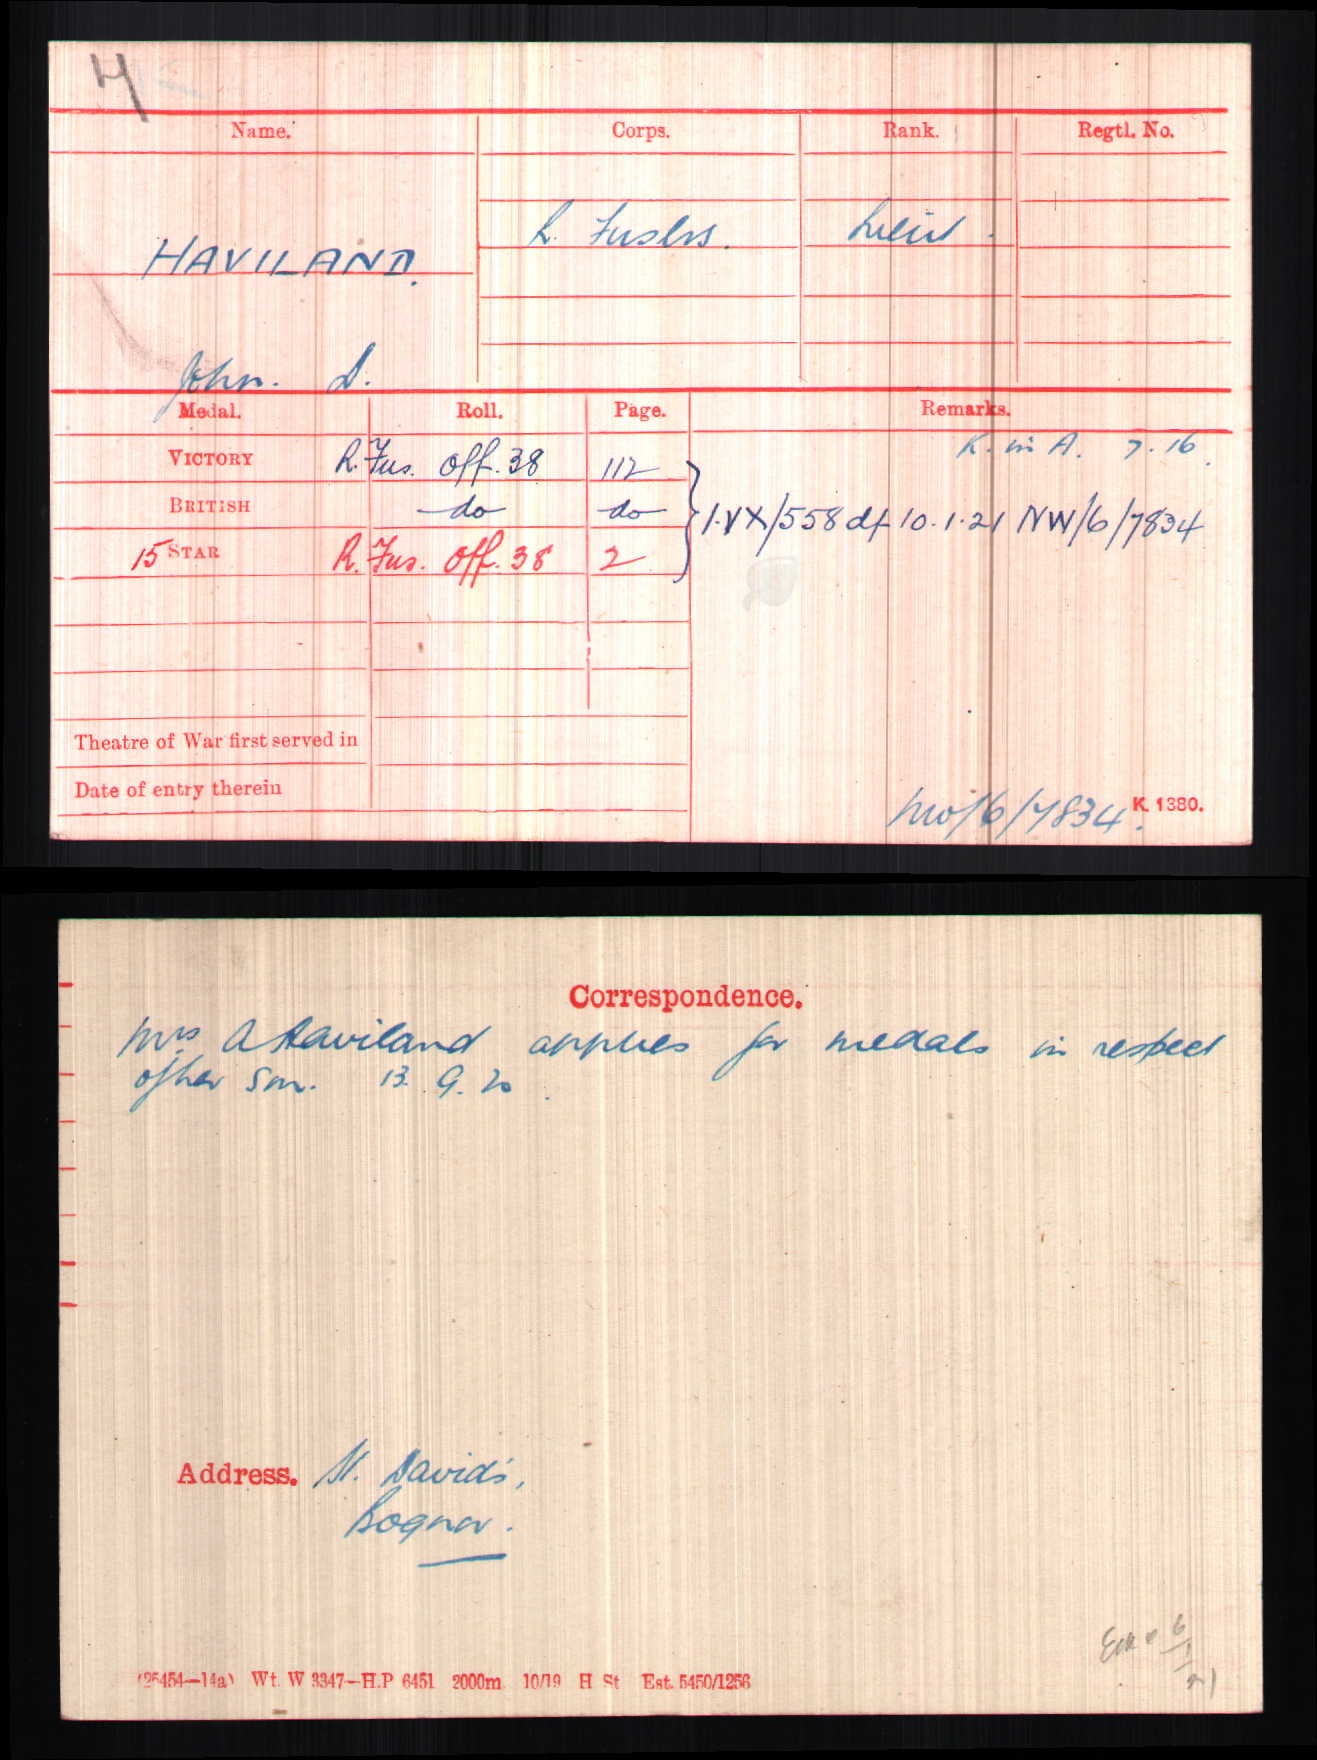 H
Name. Corps. Rank. Regtl. No.
R. Fuslrs. Lieut.
HAVILAND.
John. D.
Medal. Roll. Page. Remarks.
K. in A. 7.16.
VICTORY R. Fus. Off. 38 112
BRITISH do do } IVX/558 df 10.1.21 NW/6/7834
15 STAR R. Fus. Off. 38 2
Theatre of War first served in
Date of entry therein
NW/6/7834. K. 1380.
Correspondence.
Mrs A Haviland applies for medals in respect
of her son. 13.9.20.
Address. St. David's,
Bognor.
6/1/21
(26454—14a) Wt. W 3347—H.P 6451 2000m 10/19 H St Est. 5450/1256